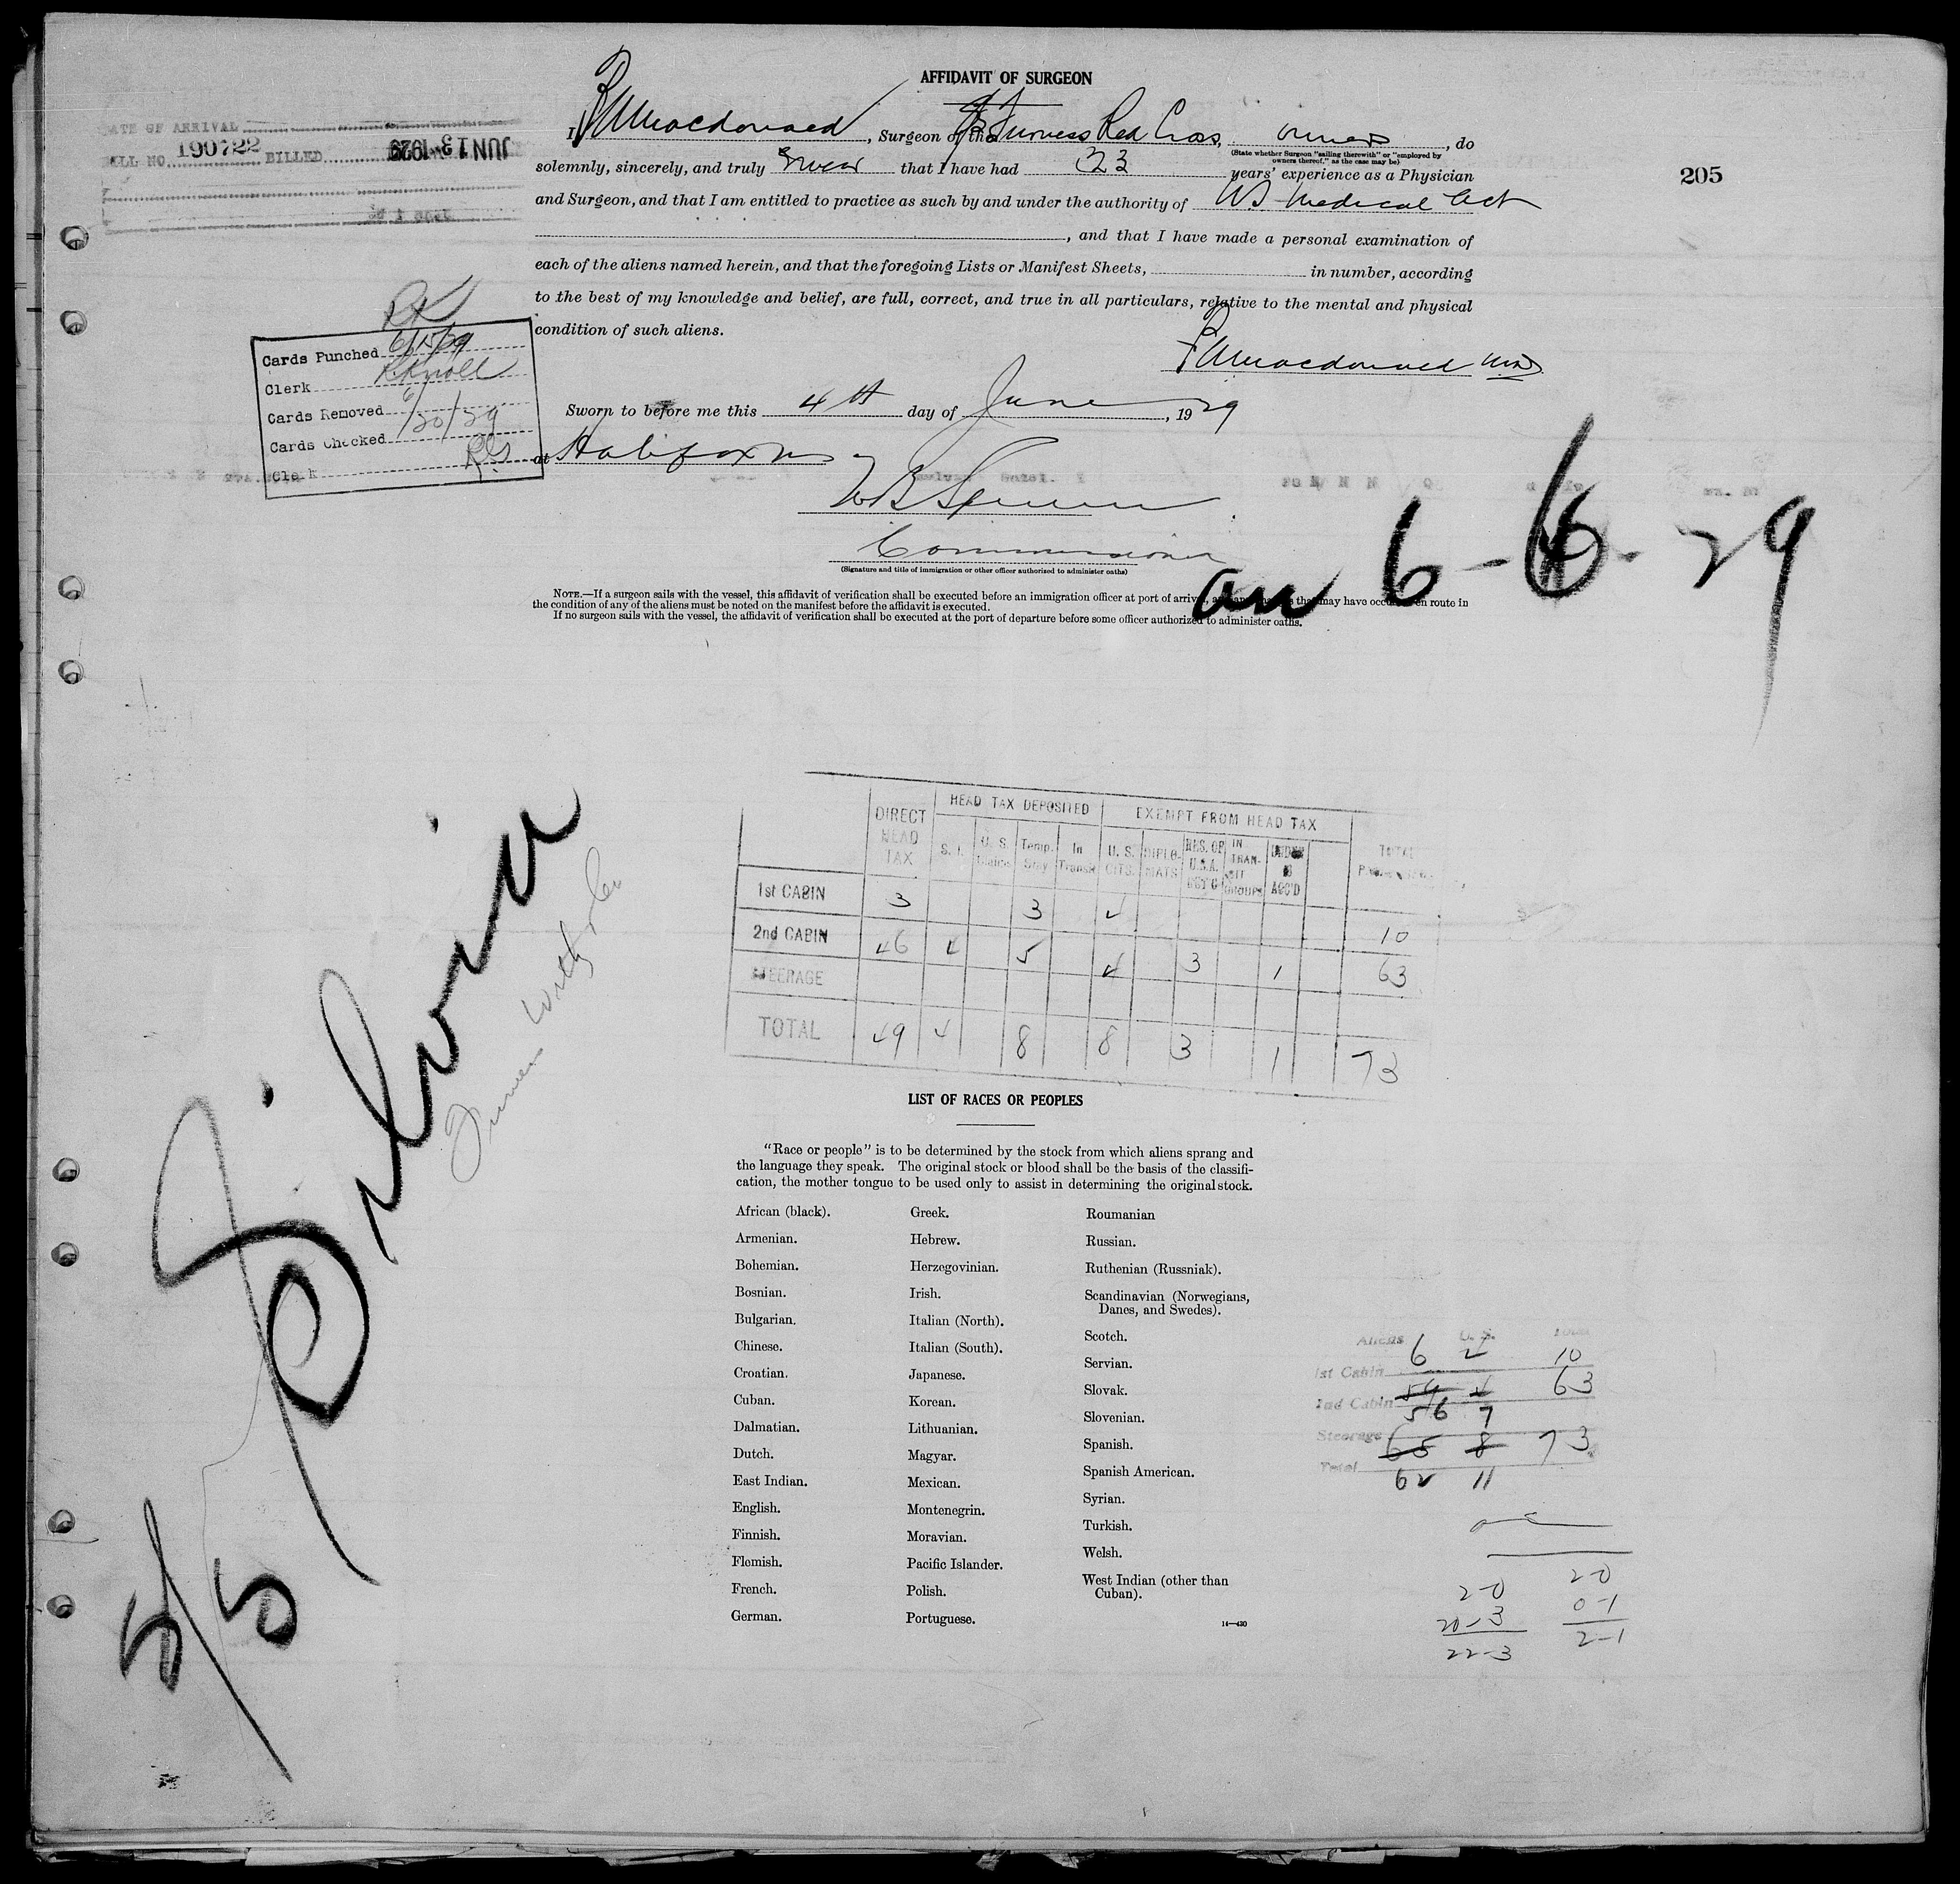 AFFIDAVIT OF SURGEON
I, Macdonald, Surgeon of the Furness Red Cross, owners, do
(State whether Surgeon "sailing therewith" or "employed by
owners thereof," as the case may be)
solemnly, sincerely, and truly swear that I have had 23 years' experience as a Physician
and Surgeon, and that I am entitled to practice as such by and under the authority of NS Medical Act
, and that I have made a personal examination of
each of the aliens named herein, and that the foregoing Lists or Manifest Sheets, in number, according
to the best of my knowledge and belief, are full, correct, and true in all particulars, relative to the mental and physical
condition of such aliens.
Macdonald MD
Sworn to before me this 4th day of June, 1929
at Halifax NS
Commissioner
(Signature and title of immigration or other officer authorized to administer oaths)
NOTE.—If a surgeon sails with the vessel, this affidavit of verification shall be executed before an immigration officer at port of arrival, that may have occurred en route in
the condition of any of the aliens must be noted on the manifest before the affidavit is executed.
If no surgeon sails with the vessel, the affidavit of verification shall be executed at the port of departure before some officer authorized to administer oaths.
DATE OF ARRIVAL
BILL NO. 190722 BILLED JUN 13 1929
205
RK
Cards Punched 6/15/29
Clerk R. Knoll
Cards Removed
Cards Checked 6/20/29
Clerk
an 6-6-29
S/S Silvia
DIRECT HEAD TAX
HEAD TAX DEPOSITED
EXEMPT FROM HEAD TAX
S. I. U. S. Temp. Stay In Transit U. S. CITS. DIPLO-MATS RES. OF U.S.A. RET'G IN TRAN-SIT GROUPS UNDER 16 ACC'D TOTAL
1st CABIN 3 3 4 10
2nd CABIN 46 4 5 4 3 1 63
STEERAGE
TOTAL 49 4 8 8 3 1 73
LIST OF RACES OR PEOPLES
"Race or people" is to be determined by the stock from which aliens sprang and
the language they speak. The original stock or blood shall be the basis of the classifi-
cation, the mother tongue to be used only to assist in determining the original stock.
African (black).
Armenian.
Bohemian.
Bosnian.
Bulgarian.
Chinese.
Croatian.
Cuban.
Dalmatian.
Dutch.
East Indian.
English.
Finnish.
Flemish.
French.
German.
Greek.
Hebrew.
Herzegovinian.
Irish.
Italian (North).
Italian (South).
Japanese.
Korean.
Lithuanian.
Magyar.
Mexican.
Montenegrin.
Moravian.
Pacific Islander.
Polish.
Portuguese.
Roumanian
Russian.
Ruthenian (Russniak).
Scandinavian (Norwegians,
Danes, and Swedes).
Scotch.
Servian.
Slovak.
Slovenian.
Spanish.
Spanish American.
Syrian.
Turkish.
Welsh.
West Indian (other than
Cuban).
14—430
Aliens U. S. Total
1st Cabin 6 4 10
2nd Cabin 59 4 63
56 7
Steerage
65 8 73
Total 62 11
2-0 2-0
20-3 0-1
22-3 2-1